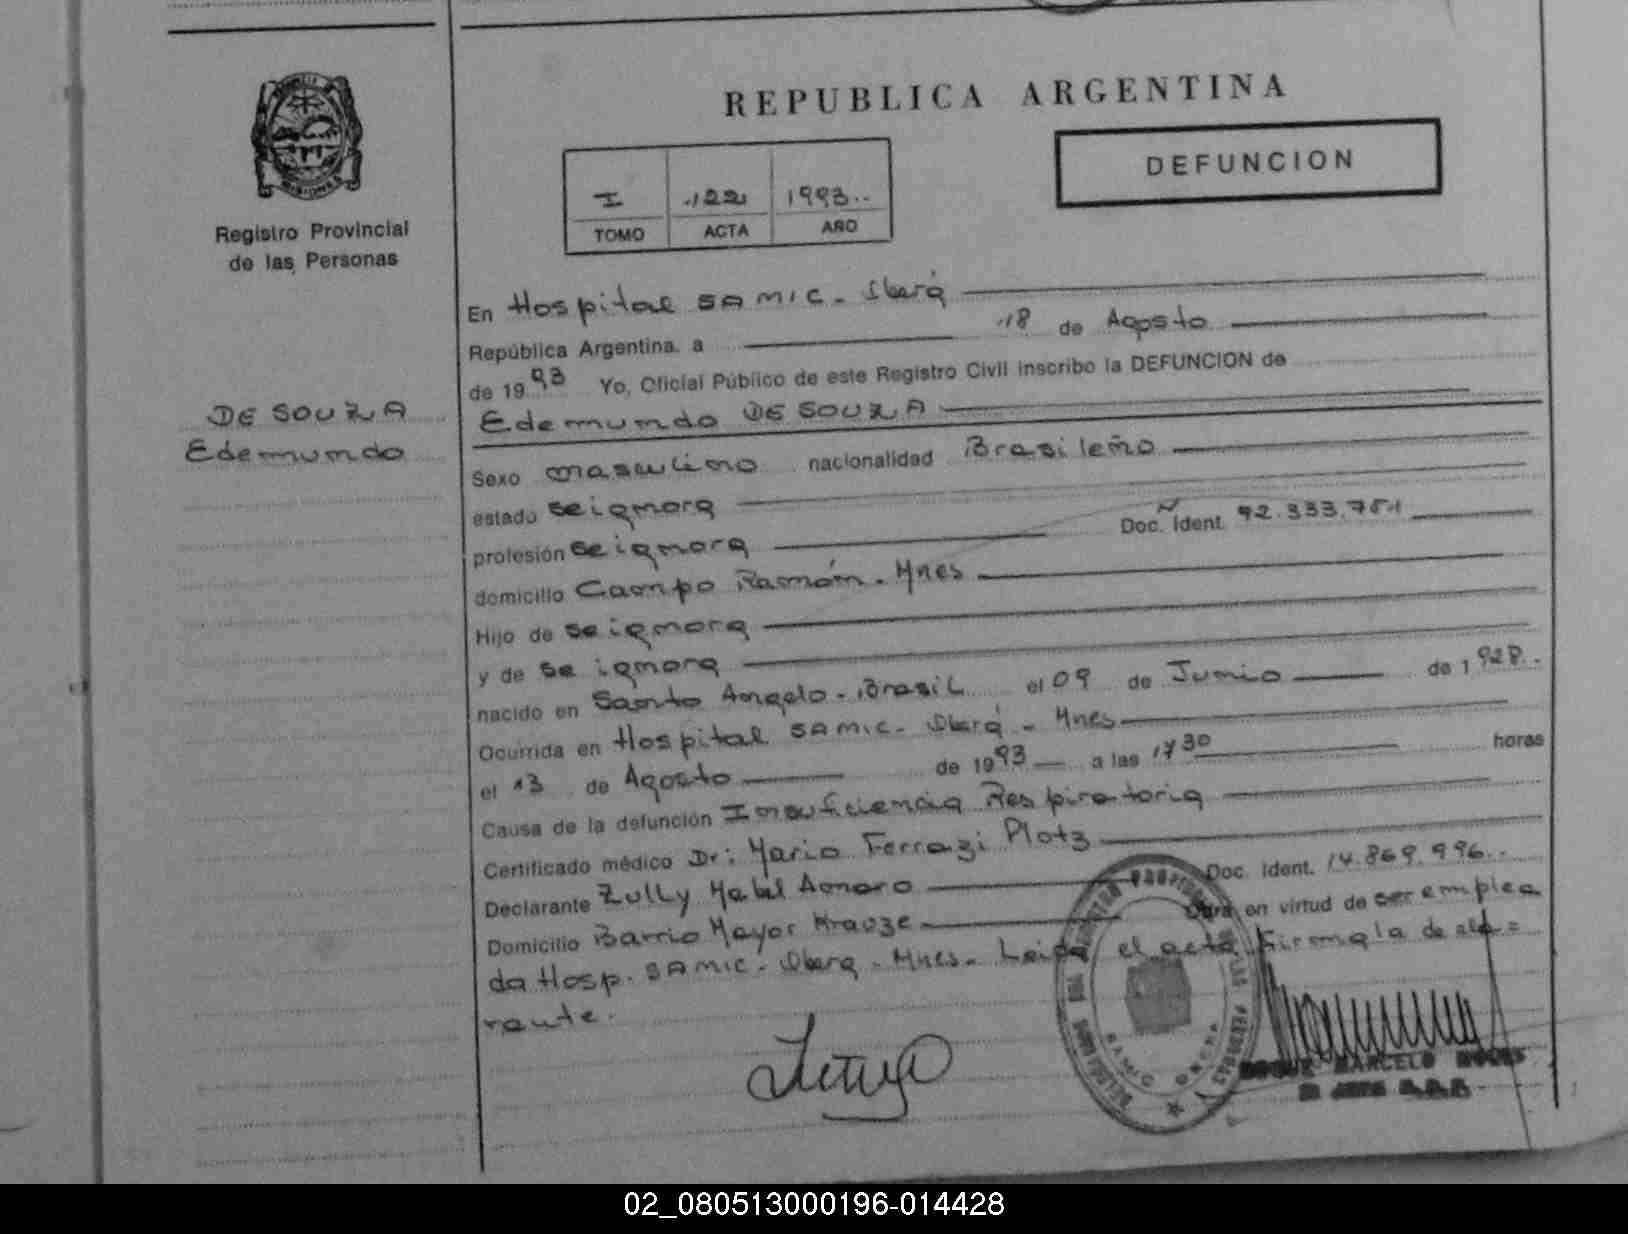 REPUBLICA ARGENTINA
DEFUNCION
I 122 1993
TOMO ACTA AÑO
MISIONES
Registro Provincial
de las Personas
DE SOUZA
Edemundo
En Hospital SAMIC - Oberá
República Argentina, a 18 de Agosto
de 1993 Yo, Oficial Público de este Registro Civil inscribo la DEFUNCION de
Edemundo DE SOUZA
Sexo masculino nacionalidad Brasileño
estado se ignora
profesión se ignora Doc. Ident. 92.333.751
domicilio Campo Ramón - Mnes
Hijo de se ignora
y de se ignora
nacido en Santo Angelo - Brasil el 09 de Junio de 1928
Ocurrida en Hospital SAMIC - Oberá - Mnes
el 13 de Agosto de 1993 a las 1730 horas
Causa de la defunción Insuficiencia Respiratoria
Certificado médico Dr: Mario Ferrazi Plotz
Declarante Zully Mabel Amaro Doc. Ident. 14.869.996
Domicilio Barrio Mayor Krauze Obra en virtud de ser emplea
da Hosp. SAMIC - Oberá - Mnes - Leida el acta firma la de cla=
rante.
ROQUE MARCELO
02_080513000196-014428